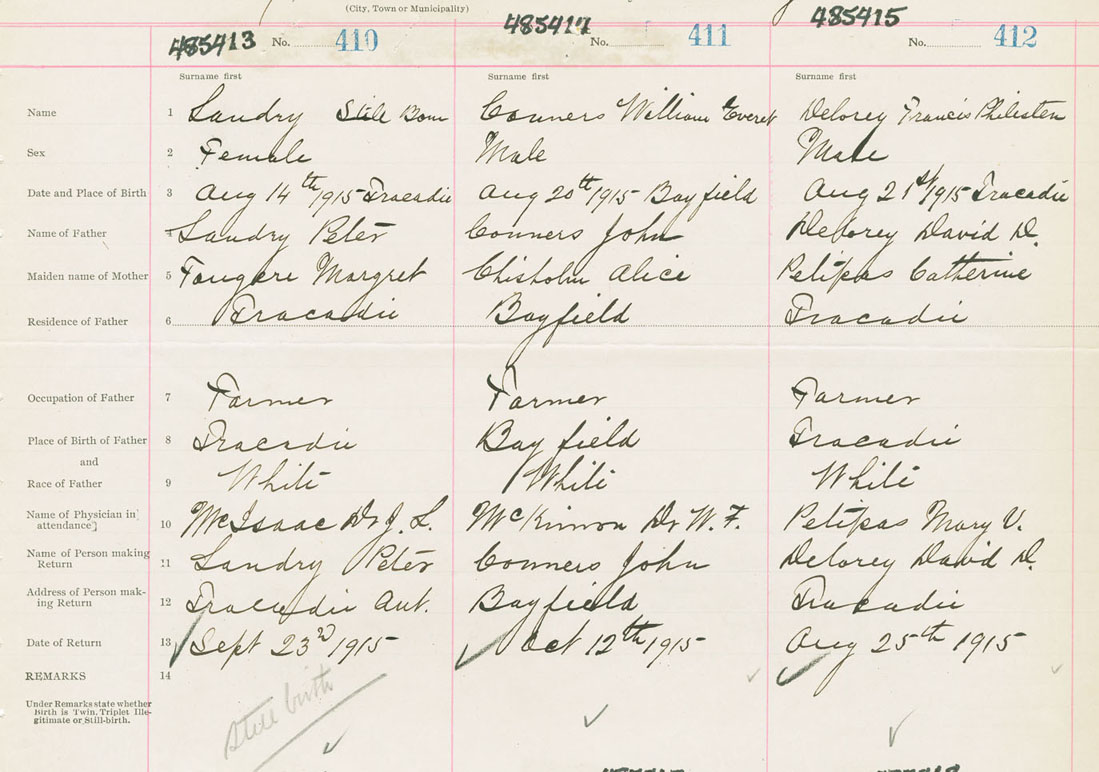 (City, Town or Municipality)
485413 No. 410 485414 No. 411 485415 No. 412
Surname first Surname first Surname first
Name 1 Landry Still Born Conners William Everet Delorey Francis Philisten
Sex 2 Female Male Male
Date and Place of Birth 3 Aug 14th 1915 Tracadie Aug 20th 1915 Bayfield Aug 21st 1915 Tracadie
Name of Father 4 Landry Peter Conners John Delorey David D.
Maiden name of Mother 5 Fougere Margret Chisholm Alice Petipas Catherine
Residence of Father 6 Tracadie Bayfield Tracadie
Occupation of Father 7 Farmer Farmer Farmer
Place of Birth of Father 8 Tracadie Bay field Tracadie
and
Race of Father 9 White White White
Name of Physician in
attendance 10 McIsaac Dr J. L. McKinnon Dr W. F. Petipas Mary V.
Name of Person making
Return 11 Landry Peter Conners John Delorey David D.
Address of Person mak-
ing Return 12 Tracadie Ant. Bayfield Tracadie
Date of Return 13 Sept 23rd 1915 Oct 12th 1915 Aug 25th 1915
REMARKS 14
Under Remarks state whether
Birth is Twin, Triplet Ille-
gitimate or Still-birth.
still birth